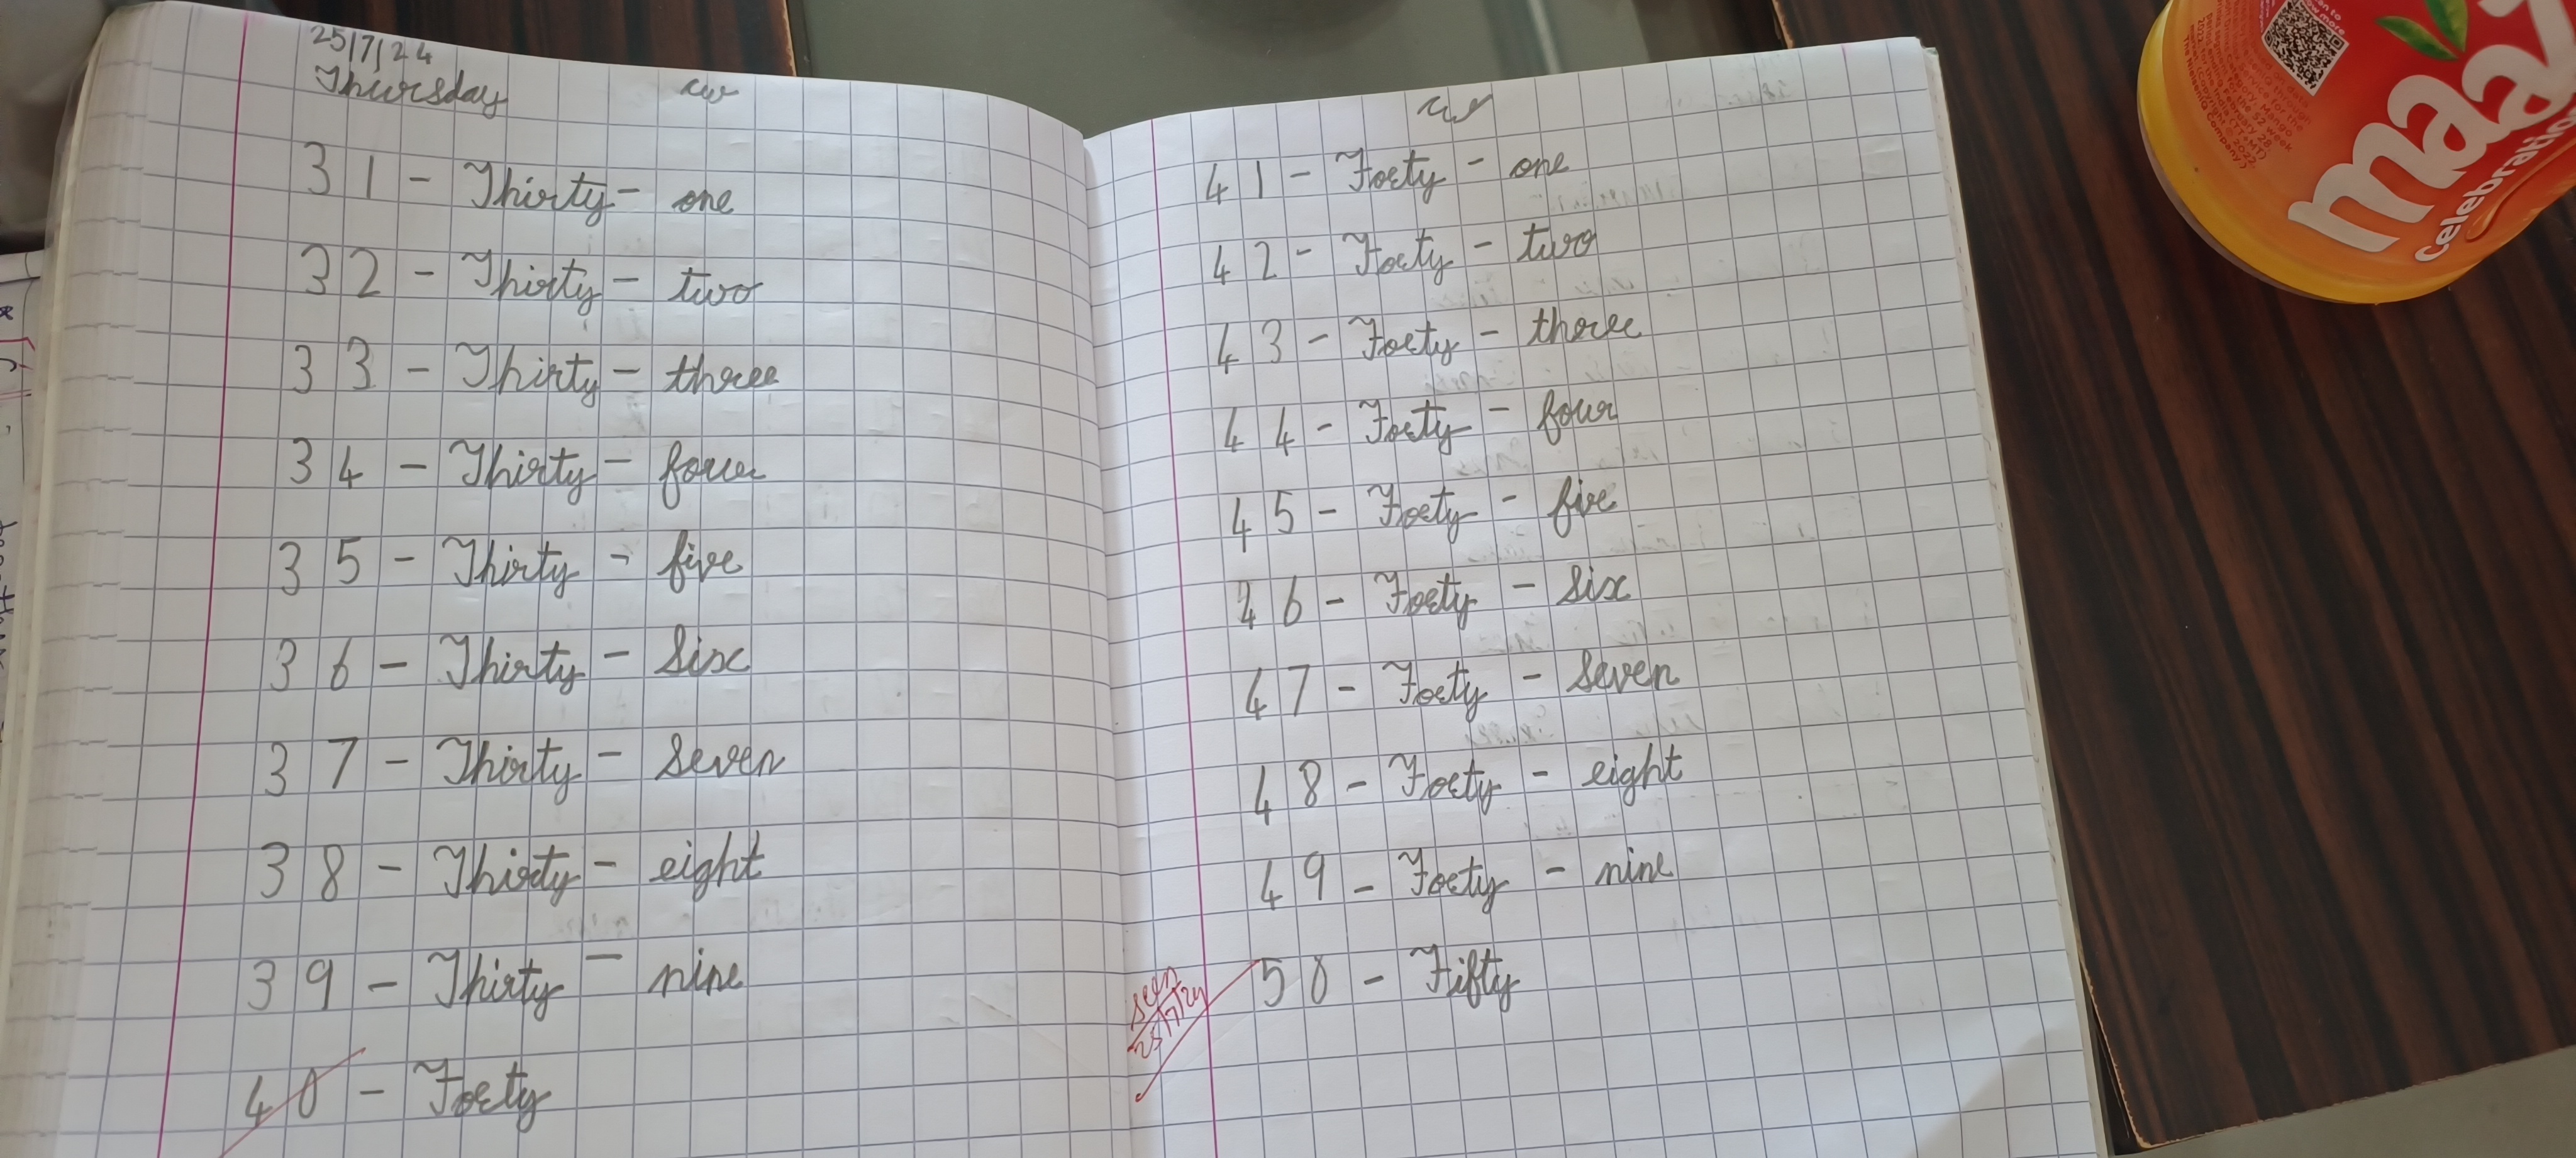 25/7/24
Thursday cw
31 - Thirty - one
32 - Thirty - two
33 - Thirty - three
34 - Thirty - four
35 - Thirty - five
36 - Thirty - Six
37 - Thirty - Seven
38 - Thirty - eight
39 - Thirty - nine
40 - Forty
cw
41 - Forty - one
42 - Forty - two
43 - Forty - three
44 - Forty - four
45 - Forty - five
46 - Forty - Six
47 - Forty - Seven
48 - Forty - eight
49 - Forty - nine
50 - Fifty
seen
25/7/24
maaz
Celebratio